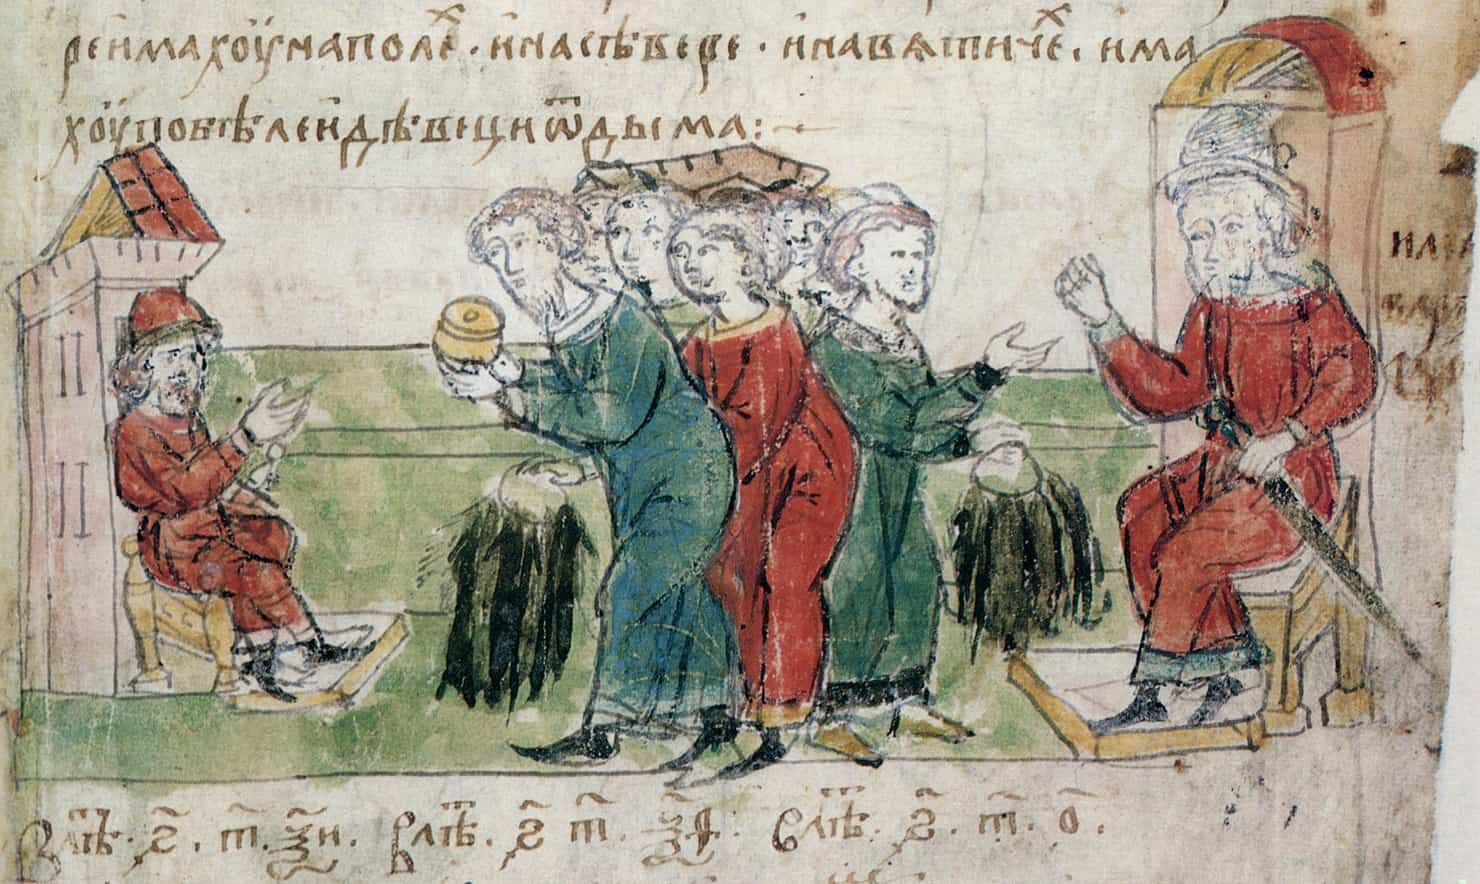 реимахоу на полеⷯ · и на сѣвере · и на вѧтичеⷯ . има
хоу по бѣлеи дѣвеци ѿ дыма :~
В лѣⷮ · ҂ѕ҃ . т҃ . ѯ҃и . В лѣⷮ . ҂ѕ҃ т҃ . ѯ҃ѳ . В лѣⷮ . ҂ѕ҃ . т҃ . о҃ .